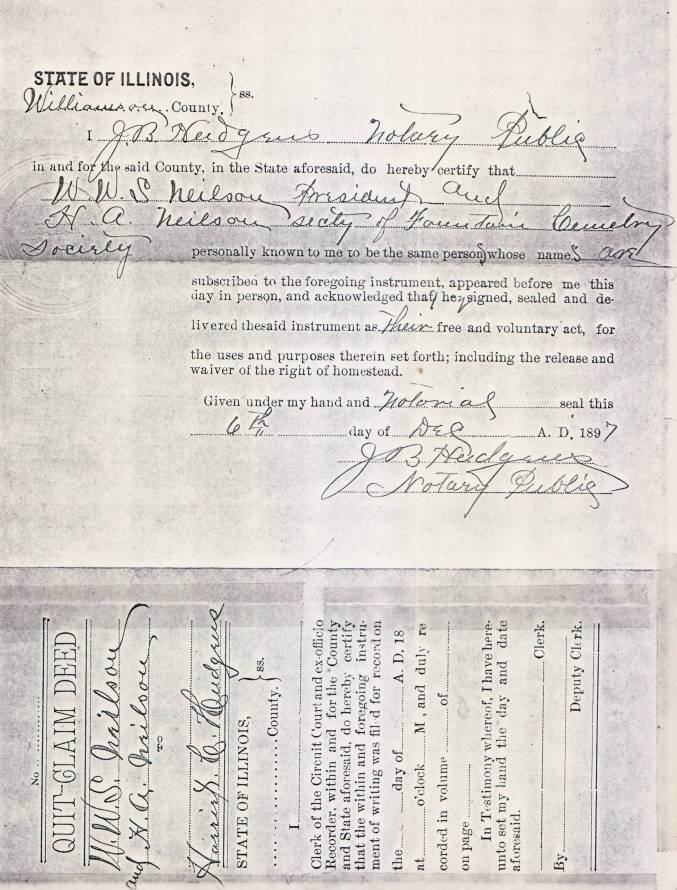 STATE OF ILLINOIS,
Williamson County. } ss.
I J B Hudgens Notary Public
in and for the said County, in the State aforesaid, do hereby certify that
W. W. S Neilson President and
H. A. Neilson secty of Fountain Cemetry
Society personally known to me to be the same persons whose names are
subscribed to the foregoing instrument, appeared before me this
day in person, and acknowledged that they signed, sealed and de-
livered thesaid instrument as Their free and voluntary act, for
the uses and purposes therein set forth; including the release and
waiver of the right of homestead.
Given under my hand and Notorial seal this
6th day of Dec A. D. 1897
J B Hudgens
Notary Public
No
QUIT-CLAIM DEED
W. W. S. Neilson
and H. A. Neilson
TO
Harris L. C. Hudgens
STATE OF ILLINOIS,
County. } ss.
I
Clerk of the Circuit Court and ex-officio
Recorder, within and for the County
and State aforesaid, do hereby certify
that the within and foregoing instru-
ment of writing was filed for record on
the day of A. D. 18
at o'clock M, and duly re
corded in volume of
on page
In Testimony whereof, I have here-
unto set my hand the day and date
aforesaid.
Clerk.
By Deputy Clerk.